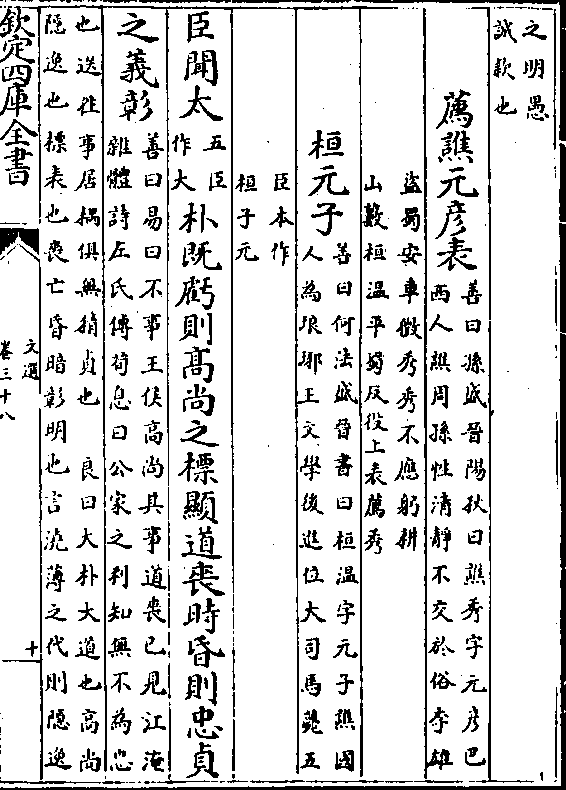 之明愚
誠款也
薦譙元彦表
善曰孫盛晉陽秋曰譙秀字元彦巴
西人譙周孫性清靜不交於俗李雄
盜蜀安車徵秀秀不應躬耕
山藪桓温平蜀反役上表薦秀
桓元子
善曰何法盛晉書曰桓温字元子譙國
人為琅邪王文學後進位大司馬薨五
臣本作
桓子元
臣聞太
五臣
作大
朴既虧則高尚之標顯道喪時昏則忠貞
之義彰
善曰易曰不事王侯高尚其事道喪已見江淹
雜體詩左氏傳荀息曰公家之利知無不為忠
也送往事居耦俱無猜貞也　良曰大朴大道也高尚
隱逸也標表也喪亡昏暗彰明也言澆薄之代則隱逸
欽定四庫全書
文選
卷三十八
十